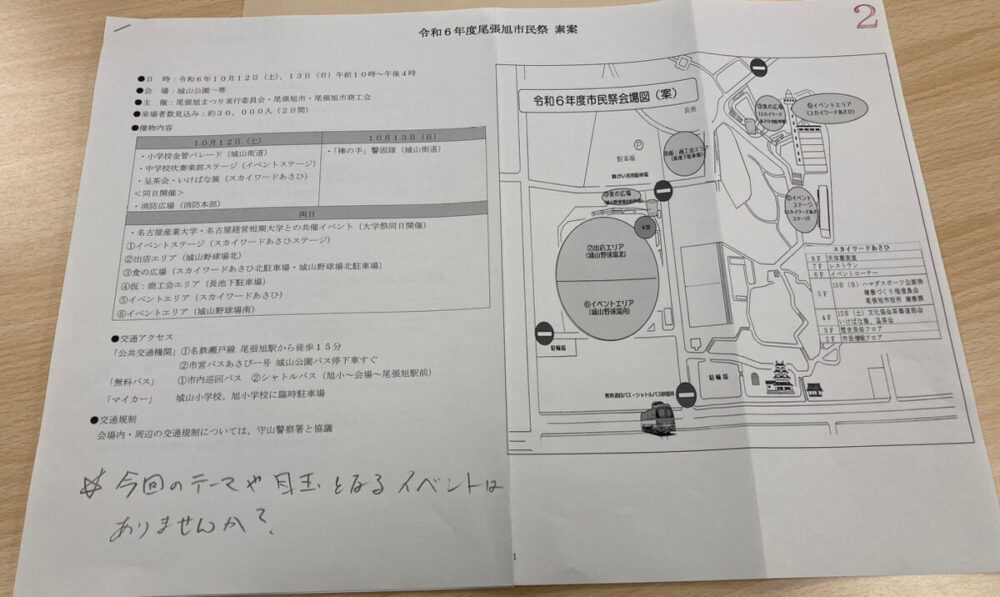 令和6年度尾張旭市民祭 素案
2
●日 時：令和6年10月12日（土）、13日（日）午前10時～午後4時
●会 場：城山公園一帯
●主 催：尾張旭まつり実行委員会・尾張旭市・尾張旭市商工会
●来場者数見込み：約30,000人（2日間）
●催物内容
10月12日（土）
10月13日（日）
・小学校金管パレード（城山街道）
・中学校吹奏楽部ステージ（イベントステージ）
・呈茶会・いけばな展（スカイワードあさひ）
＜同日開催＞
・消防広場（消防本部）
・「棒の手」警固隊（城山街道）
両日
・名古屋産業大学・名古屋経営短期大学との共催イベント（大学祭同日開催）
①イベントステージ（スカイワードあさひステージ）
②出店エリア（城山野球場北）
③食の広場（スカイワードあさひ北駐車場・城山野球場北駐車場）
④仮：商工会エリア（長池下駐車場）
⑤イベントエリア（スカイワードあさひ）
⑥イベントエリア（城山野球場南）
●交通アクセス
「公共交通機関」①名鉄瀬戸線 尾張旭駅から徒歩15分
②市営バスあさぴー号 城山公園バス停下車すぐ
「無料バス」 ①市内巡回バス ②シャトルバス（旭小～会場～尾張旭駅前）
「マイカー」 城山小学校、旭小学校に臨時駐車場
●交通規制
会場内・周辺の交通規制については、守山警察署と協議
☆今回のテーマや目玉となるイベントは
ありませんか？
令和6年度市民祭会場図（案）
長池
P
駐車場
③食の広場
（スカイワード
⑤イベントエリア
（スカイワードあさひ）
④仮：商工会エリア
（長池下駐車場）
障がい者用駐車場
③食の広場
本部
①イベント
ステージ
（スカイワードあさ
ひステージ）
②出店エリア
（城山野球場北）
⑥イベントエリア
（城山野球場南）
スカイワードあさひ
8F 天体観測室
7F レストラン
6F イベントコーナー
5F 13日（日）ハマダスポーツ企画㈱
健康づくり推進員会
尾張旭市役所 健康課
4F 12日（土）文化協会茶華道部会
いけばな展、呈茶会
3F 歴史民俗フロア
2F 市民情報フロア
駐輪場
駐輪場
無料巡回バス・シャトルバス
1